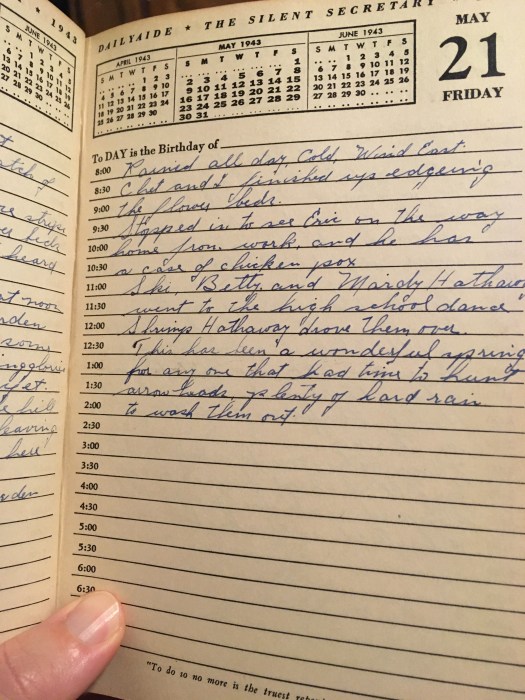 1943
★ 1943
JUNE 1943
S M T W T F S
DAILYAIDE ★ THE SILENT SECRETARY
APRIL 1943
S M T W T F S
1 2 3
4 5 6 7 8 9 10
11 12 13 14 15 16 17
18 19 20 21 22 23 24
25 26 27 28 29 30
MAY 1943
S M T W T F S
1
2 3 4 5 6 7 8
9 10 11 12 13 14 15
16 17 18 19 20 21 22
23 24 25 26 27 28 29
30 31
JUNE 1943
S M T W T F S
1 2 3 4 5
6 7 8 9 10 11 12
13 14 15 16 17 18 19
20 21 22 23 24 25 26
27 28 29 30
MAY
21
FRIDAY
To DAY is the Birthday of
8:00 Rained all day, Cold, Wind East.
8:30 Chet and I finished up edgeing
9:00 the flower beds.
9:30 Stopped in to see Eric on the way
10:00 home from work, and he has
10:30 a case of chicken pox
11:00 Ski, Betty and Mardy Hathaway
11:30 went to the high school dance
12:00 Shrimp Hathaway drove them over.
12:30 This has been a wonderful spring
1:00 for any one that had time to hunt
1:30 arrow heads, plenty of hard rain
2:00 to wash them out.
2:30
3:00
3:30
4:00
4:30
5:00
5:30
6:00
6:30
"To do so no more is the truest
heard
at noon
rden
some
leaving
here